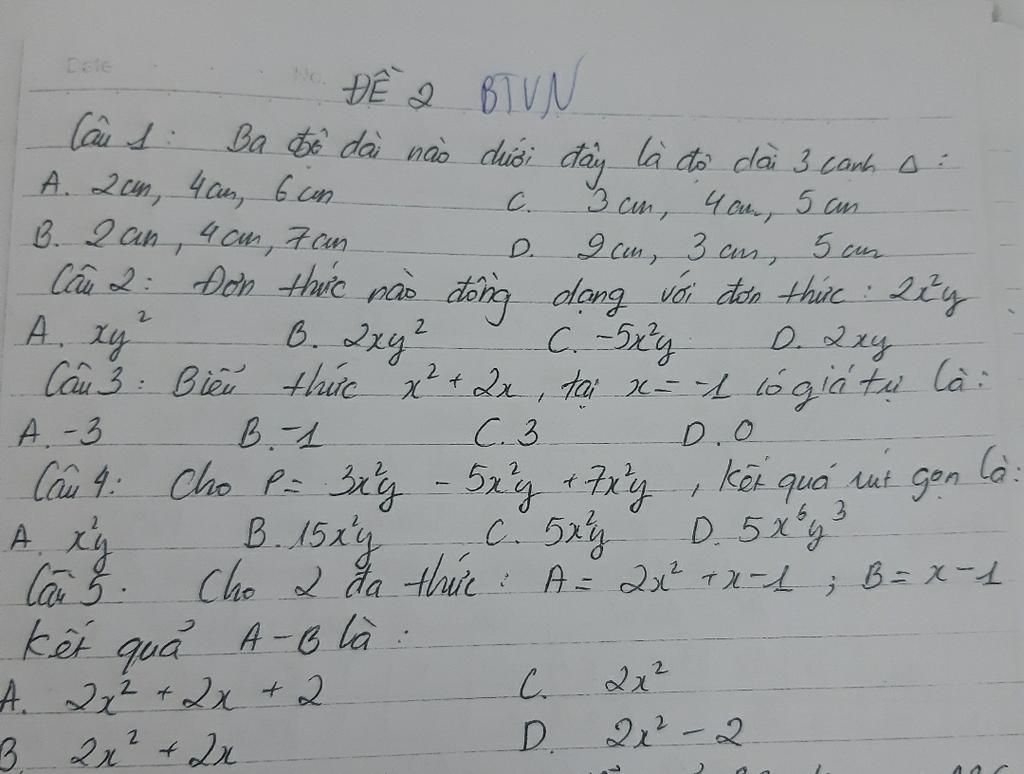 Date No.
ĐỀ 2 BTVN
Câu 1: Ba độ dài nào dưới đây là độ dài 3 cạnh Δ:
A. 2cm, 4cm, 6cm C. 3cm, 4cm, 5cm
B. 2cm, 4cm, 7cm D. 2cm, 3cm, 5cm
Câu 2: Đơn thức nào đồng dạng với đơn thức: 2x²y
A. xy² B. 2xy² C. -5x²y D. 2xy
Câu 3: Biểu thức x² + 2x, tại x = -1 có giá trị là:
A. -3 B. -1 C. 3 D. 0
Câu 4: Cho P = 3x²y - 5x²y + 7x²y, kết quả rút gọn là:
A. x²y B. 15x²y C. 5x²y D. 5x⁶y³
Câu 5. Cho 2 đa thức: A = 2x² + x - 1 ; B = x - 1
Kết quả A - B là:
A. 2x² + 2x + 2 C. 2x²
B. 2x² + 2x D. 2x² - 2